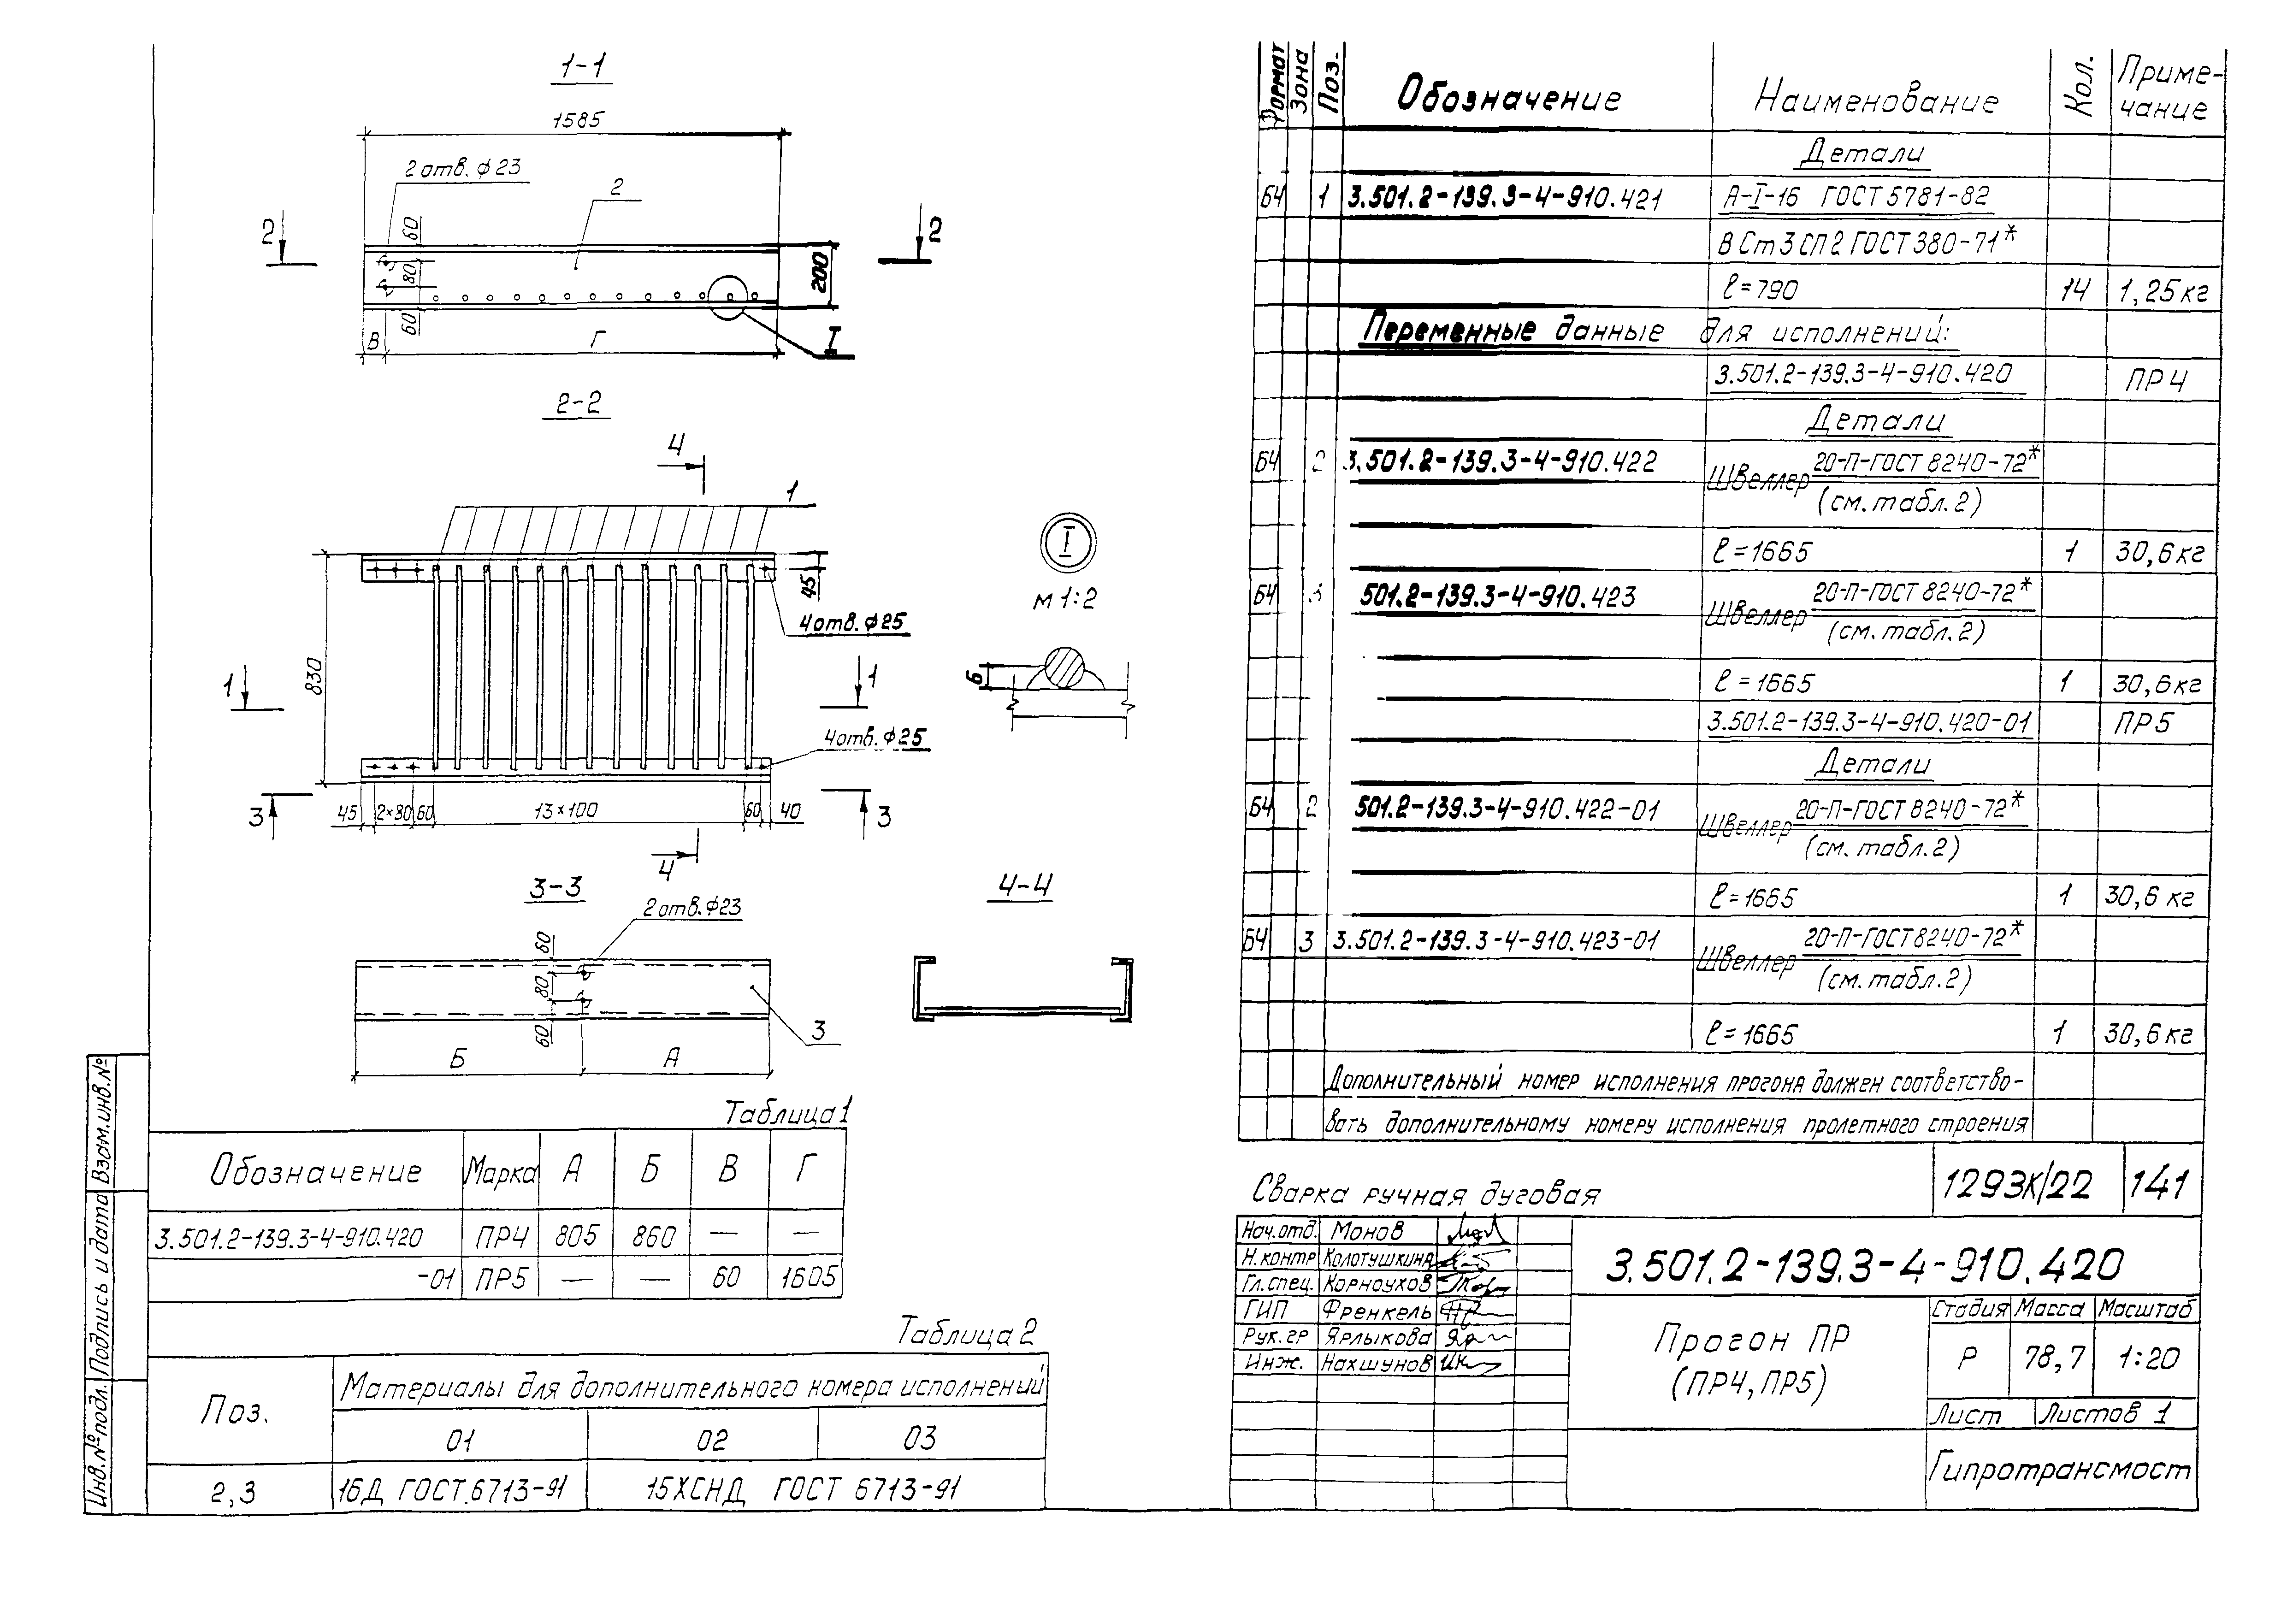 1-1
1585
2 отв. ф 23
2
2
2
60
80
60
200
В
Г
I
2-2
4
1
45
4 отв. ф25
830
1
1
4 отв. ф25
3
45
2×80
60
13×100
60
40
3
4
I
м 1:2
6
3-3
2 отв. ф23
60
80
60
3
Б
А
4-4
Таблица 1
Обозначение Марка А Б В Г
3.501.2-139.3-4-910.420 ПР4 805 860 — —
-01 ПР5 — — 60 1605
Таблица 2
Поз.
Материалы для дополнительного номера исполнений
01 02 03
2,3 16Д ГОСТ.6713-91 15ХСНД ГОСТ 6713-91
Взам.инв.№
Подпись и дата
Инв.№ подл.
Формат Зона Поз. Обозначение Наименование Кол. Приме-
чание
Детали
БЧ 1 3.501.2-139.3-4-910.421 А-I-16 ГОСТ 5781-82
В Ст 3 СП 2 ГОСТ 380-71*
ℓ=790 14 1,25 кг
Переменные данные для исполнений:
3.501.2-139.3-4-910.420 ПР4
Детали
БЧ 2 3.501.2-139.3-4-910.422 Швеллер 20-П-ГОСТ 8240-72*
(см. табл. 2)
ℓ=1665 1 30,6 кг
БЧ 3 501.2-139.3-4-910.423 Швеллер 20-П-ГОСТ 8240-72*
(см. табл. 2)
ℓ=1665 1 30,6 кг
3.501.2-139.3-4-910.420-01 ПР5
Детали
БЧ 2 501.2-139.3-4-910.422-01 Швеллер 20-П-ГОСТ 8240-72*
(см. табл. 2)
ℓ=1665 1 30,6 кг
БЧ 3 3.501.2-139.3-4-910.423-01 Швеллер 20-П-ГОСТ 8240-72*
(см. табл. 2)
ℓ=1665 1 30,6 кг
Дополнительный номер исполнения прогона должен соответство-
вать дополнительному номеру исполнения пролетного строения
Сварка ручная дуговая
1293К/22 141
Нач.отд. Монов
Н.контр Колотушкина
Гл.спец. Корноухов
ГИП Френкель
Рук.гр Ярлыкова
Инж. Нахшунов
3.501.2-139.3-4-910.420
Прогон ПР
(ПР4, ПР5)
Стадия Масса Масштаб
Р 78,7 1:20
Лист Листов 1
Гипротрансмост